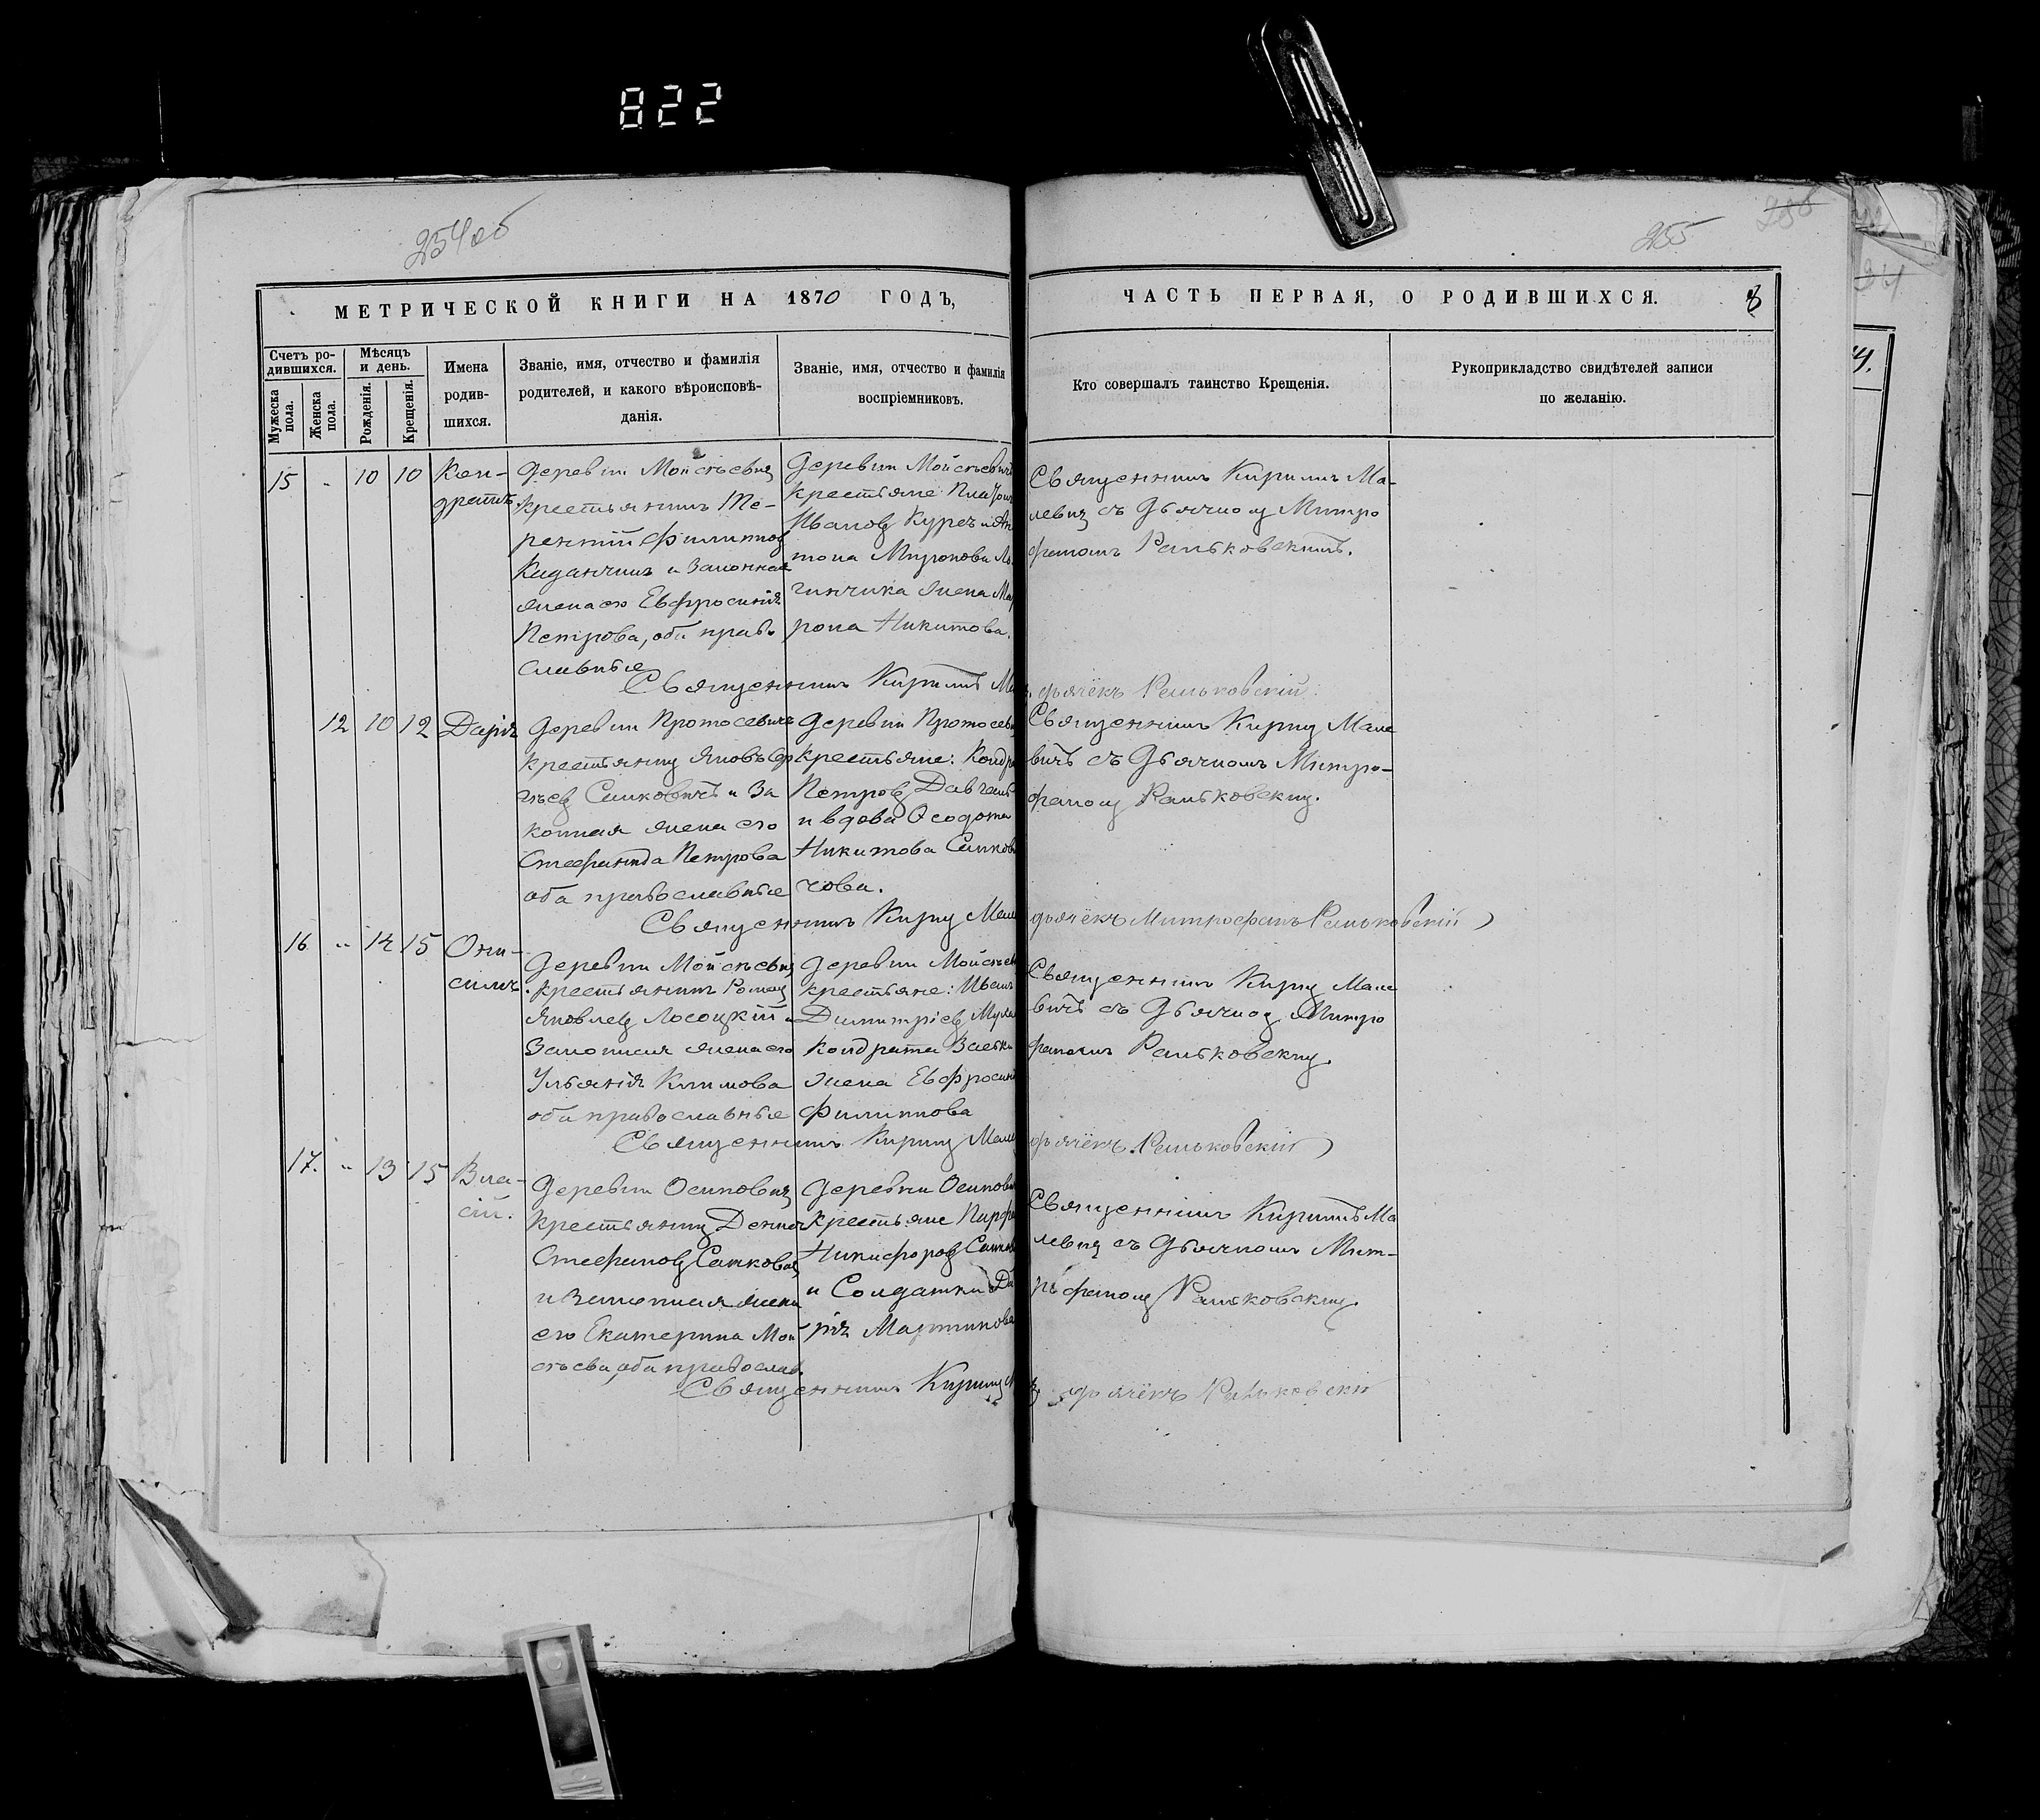 822
254об
255
МЕТРИЧЕСКОЙ КНИГИ НА 1870 ГОДЪ,
Счетъ ро-
дившихся.
Мужеска пола.
Женска пола.
Мѣсяцъ
и день.
Рожденія.
Крещенія.
Имена
родив-
шихся.
Званіе, имя, отчество и фамилія
родителей, и какого вѣроисповѣ-
данія.
Званіе, имя, отчество и фамилія
воспріемниковъ.
ЧАСТЬ ПЕРВАЯ, О РОДИВШИХСЯ. 8
Кто совершалъ таинство Крещенія.
Рукоприкладство свидѣтелей записи
по желанію.
15 " 10 10
Кон-
дратъ.
Деревни Мойсѣевич
крестьянинъ Те-
рентій Филиппов
и законная
жена его Евфросинія
Петрова, оба право
славные
Деревни Мойсѣевич
крестьяне Платон
Иванов Курсъ и Ан
тона Миронова Ло
гинчика жена Ма
рона Никитова.
Священникъ Кирилъ Ма-
левич съ Дьячком Митро
фаномъ Раньковскимъ.
Священникъ Кирилъ Ма
дьячёкъ Раньковскій
12 10 12
Дарія
Деревни Протасевичъ
крестьянин Яковъ Сер
гѣев Сынковичъ и за
конная жена его
Стефанида Петрова
оба православные
Деревни Протасев
крестьяне: Кондра
Петров
и вдова Феодота
Никитова Сынкови
чова.
Священникъ Кирил Мале
вичъ съ Дьячкомъ Митро-
фаном Раньковским.
Священникъ Кирил Мале
дьячёкъ Митрофанъ Раньковскій
16 " 14 15
Они-
симъ.
Деревни Мойсѣевич
крестьянинъ Роман
Яковлев Лосоцкій и
Законная жена его
Ульянія Климова
оба православные
Деревни Мойсѣев
крестьяне: Иванъ
Димитріев
Кондрата
жена Евфросинія
Филиппова
Священникъ Кирил Мале
вичъ съ Дьячком Митро
фаномъ Раньковским.
Священникъ Кирил Мале
дьячёкъ Раньковскій
17. " 13 15
Вла-
сій.
Деревни Осипович
крестьянин Денис
Стефанов Саткович
и Законная жена
его Екатерина Мой
сѣева, оба православ.
Деревни Осипови
крестьяне Парфе
Никифоров
и Солдатка Да
рія Мартинова
Священникъ Кирилъ Ма
левич съ Дьячкомъ Мит-
рофаном Раньковским.
Священникъ Кирил
дьячёкъ Раньковскій